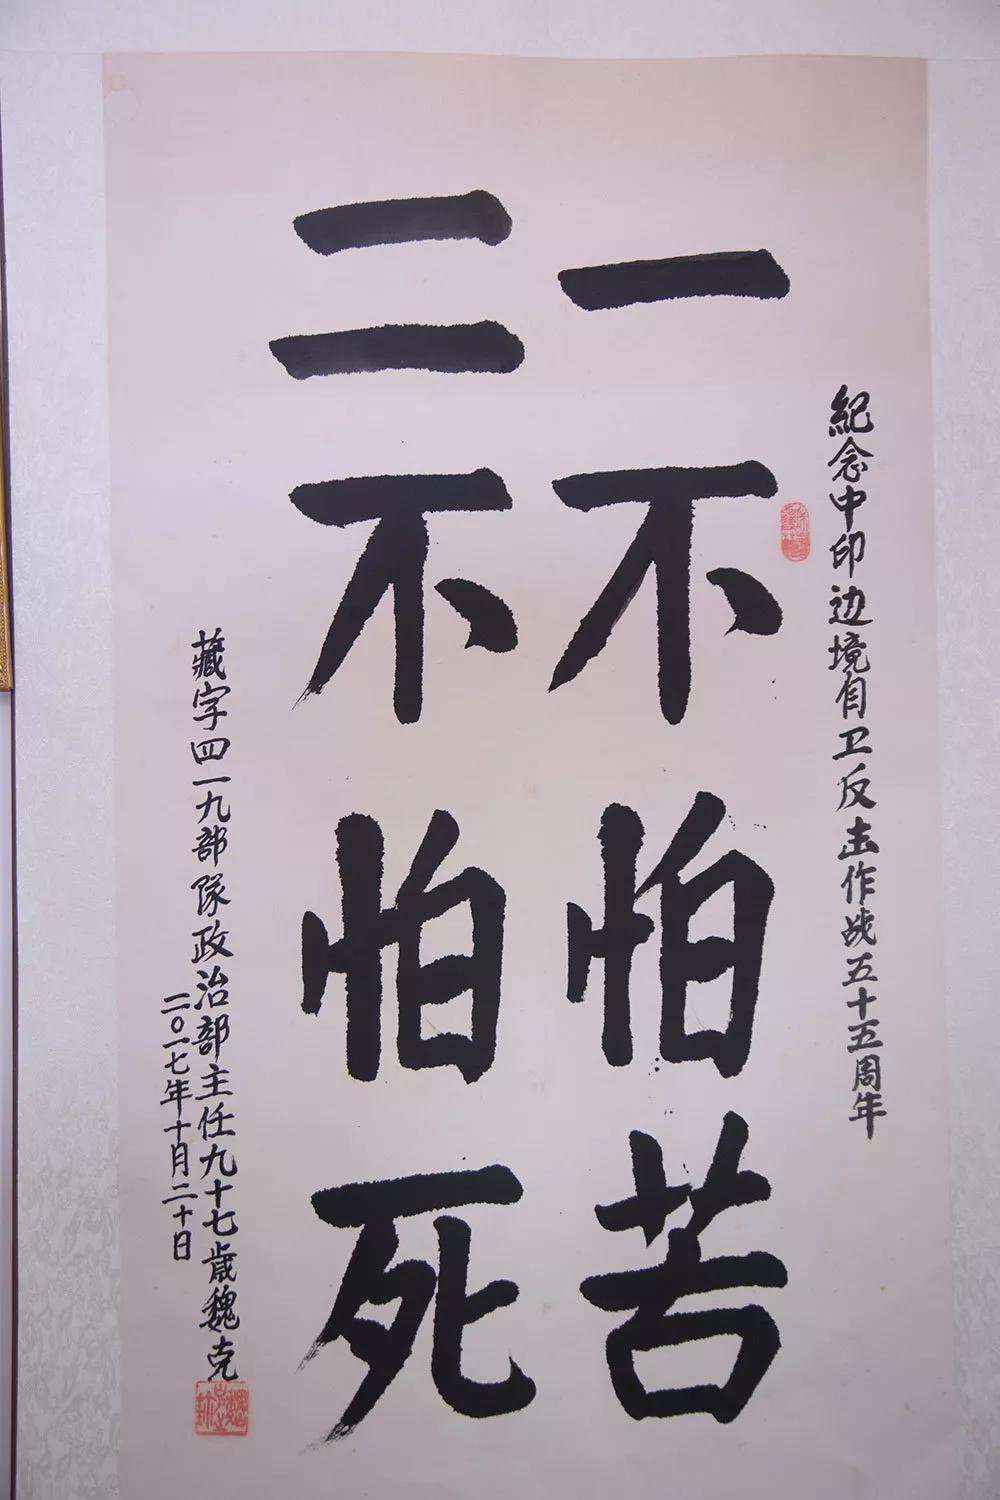 紀念中印边境自卫反击作战五十五周年
一不怕苦
二不怕死
藏字四一九部隊政治部主任九十七歲魏克
二〇一七年十月二十日